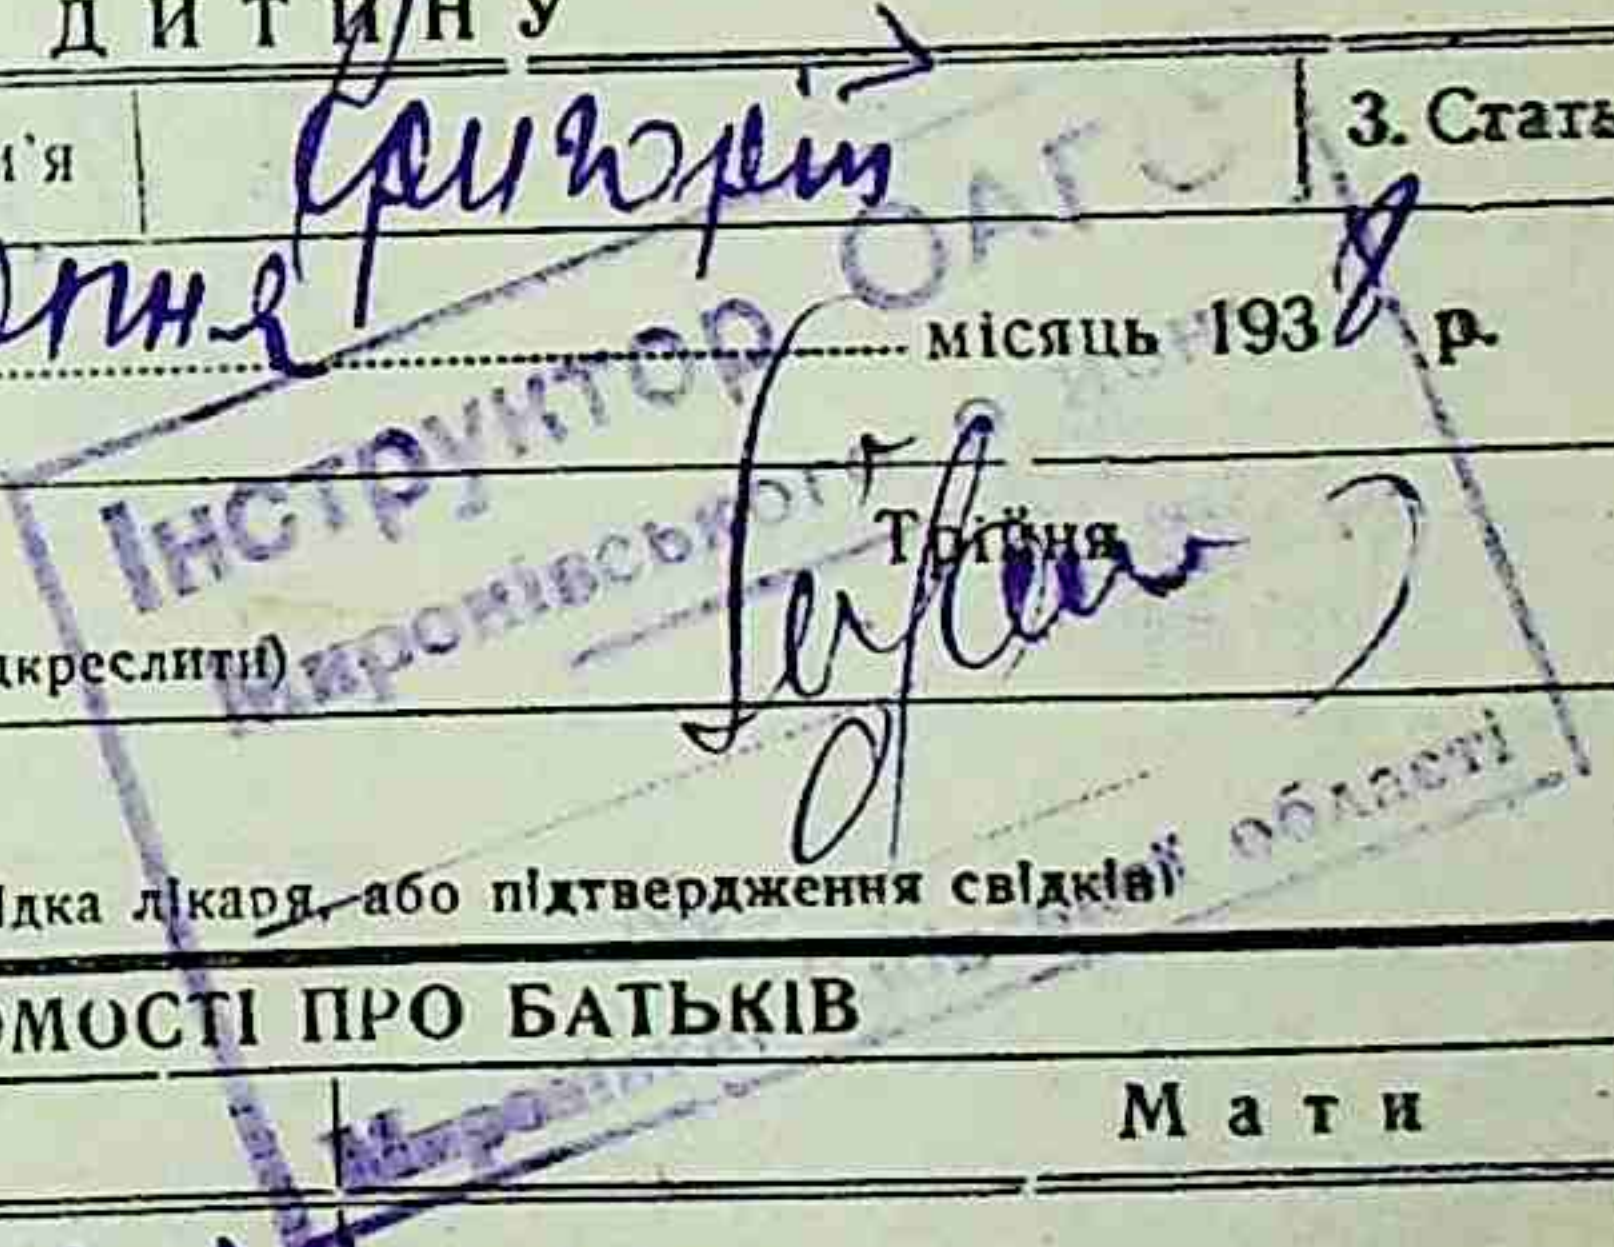 ДИТИНУ
м'я Григорій 3. Стать
пня місяць 1938 р.
Інструктор ОАГС
Миронівського
Трійня
дкреслити)
області
ідка лікаря, або підтвердження свідків)
ОМОСТІ ПРО БАТЬКІВ
Мати